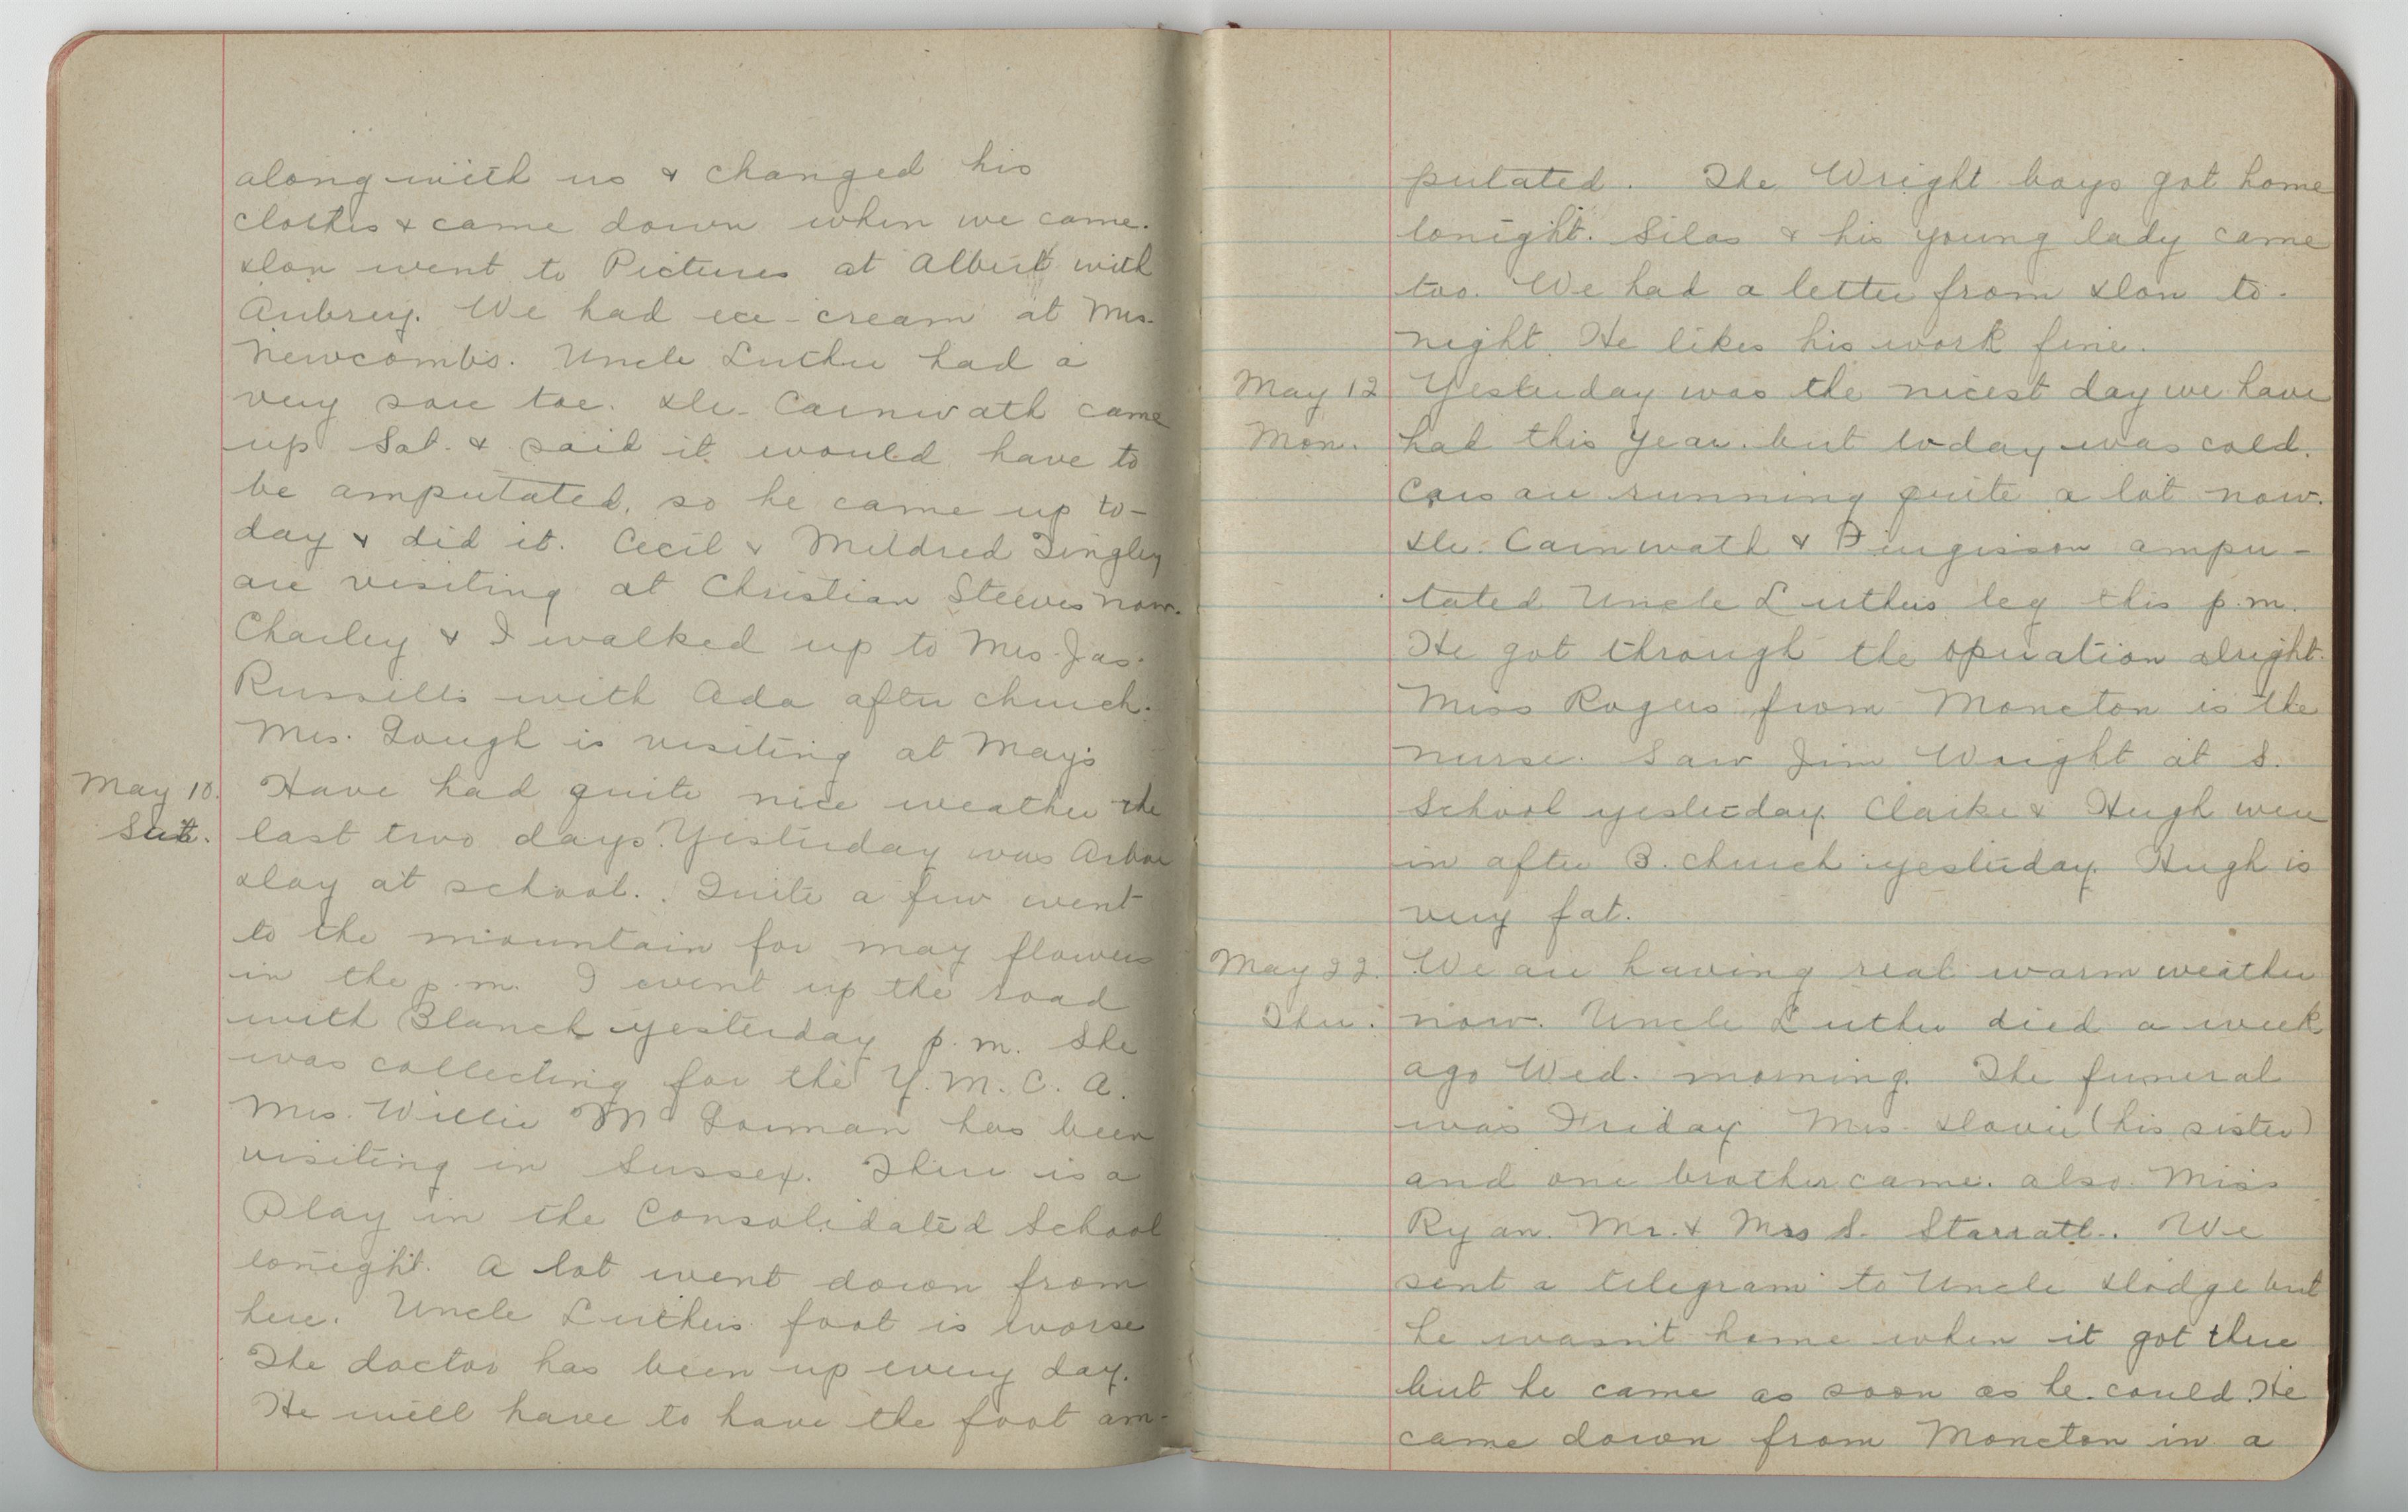 along with us & changed his
clothes & came down when we came.
Don went to Pictures at Albert with
Aubrey. We had ice-cream at Mrs.
Newcombs. Uncle Luther had a
very sore toe. Dr. Carnwath came
up Sat. & said it would have to
be amputated, so he came up to-
day & did it. Cecil & Mildred Tingley
are visiting at Christian Steeves now.
Charley & I walked up to Mrs. Jas.
Russells with Ada after church.
Mrs. Gough is visiting at May's
May 10. Have had quite nice weather the
Sat. last two days. Yesterday was Arbor
day at school. Quite a few went
to the mountain for may flowers
in the p.m. I went up the road
with Blanch yesterday p.m. She
was collecting for the Y.M.C.A.
Mrs. Willie McGorman has been
visiting in Sussex. There is a
Play in the Consolidated School
tonight. A lot went down from
here. Uncle Luthers foot is worse
The doctor has been up every day.
He will have to have the foot am-
putated. The Wright boys got home
tonight. Silas & his young lady came
too. We had a letter from Don to-
night. He likes his work fine.
May 12 Yesterday was the nicest day we have
Mon. had this year. but today was cold.
Cars are running quite a lot now.
Drs. Carnwath & Fergisson ampu-
tated Uncle Luthers leg this p.m.
He got through the operation alright.
Miss Rogers from Moncton is the
nurse. Saw Jim Wright at S.
School yesterday. Clarke & Hugh were
in after B. church yesterday. Hugh is
very fat.
May 22. We are having real warm weather
Thu. now. Uncle Luther died a week
ago Wed. morning. The funeral
was Friday. Mrs. (his sister)
and one brother came. also Miss
Ryan. Mr. & Mrs S. Starratt. We
sent a telegram to Uncle Dodge but
he wasn't home when it got there
but he came as soon as he could. He
came down from Moncton in a